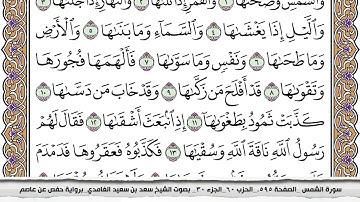 وَٱلشَّمۡسِ وَضُحَىٰهَا ١ وَٱلۡقَمَرِ إِذَا تَلَىٰهَا ٢ وَٱلنَّهَارِ إِذَا جَلَّىٰهَا ٣
وَٱلَّيۡلِ إِذَا يَغۡشَىٰهَا ٤ وَٱلسَّمَآءِ وَمَا بَنَىٰهَا ٥ وَٱلۡأَرۡضِ
وَمَا طَحَىٰهَا ٦ وَنَفۡسٖ وَمَا سَوَّىٰهَا ٧ فَأَلۡهَمَهَا فُجُورَهَا
وَتَقۡوَىٰهَا ٨ قَدۡ أَفۡلَحَ مَن زَكَّىٰهَا ٩ وَقَدۡ خَابَ مَن دَسَّىٰهَا ١٠
كَذَّبَتۡ ثَمُودُ بِطَغۡوَىٰهَآ ١١ إِذِ ٱنۢبَعَثَ أَشۡقَىٰهَا ١٢ فَقَالَ لَهُمۡ
رَسُولُ ٱللَّهِ نَاقَةَ ٱللَّهِ وَسُقۡيَٰهَا ١٣ فَكَذَّبُوهُ فَعَقَرُوهَا فَدَمۡدَمَ
سورة الشمس _الصفحة ٥٩٥_ الحزب ٦٠_الجزء ٣٠_ بصوت الشيخ سعد بن سعيد الغامدي_برواية حفص عن عاصم